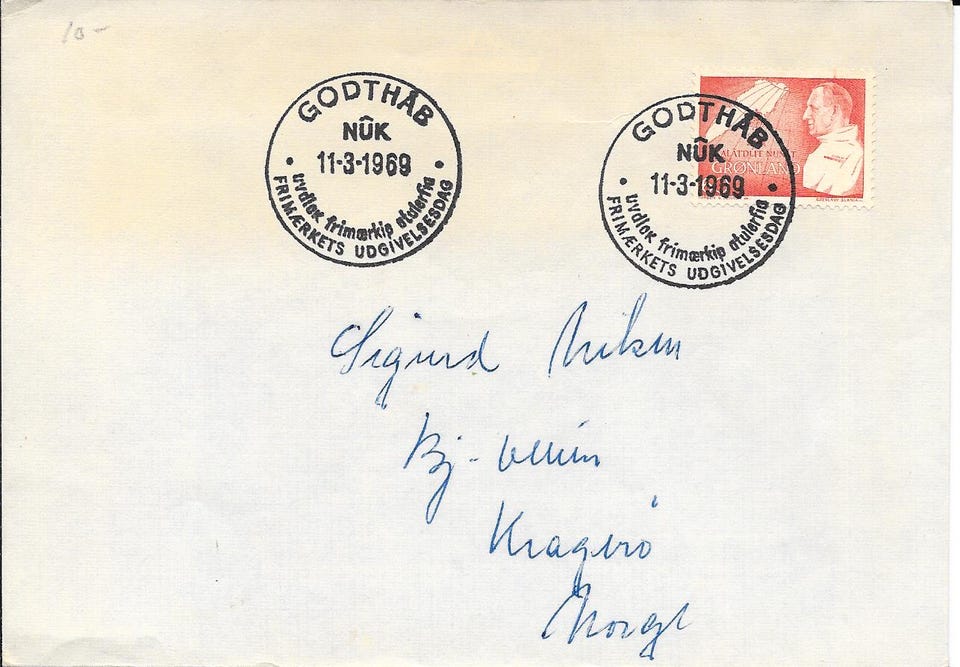 10-
GODTHÅB
NÛK
11-3-1969
uvdlok frimærkip atulerfia
FRIMÆRKETS UDGIVELSESDAG
GODTHÅB
NÛK
11-3-1969
uvdlok frimærkip atulerfia
FRIMÆRKETS UDGIVELSESDAG
KALÂTDLIT NUNÂT
GRØNLAND
CZESLAW SLANIA
Sigurd
Kragerø
Norge